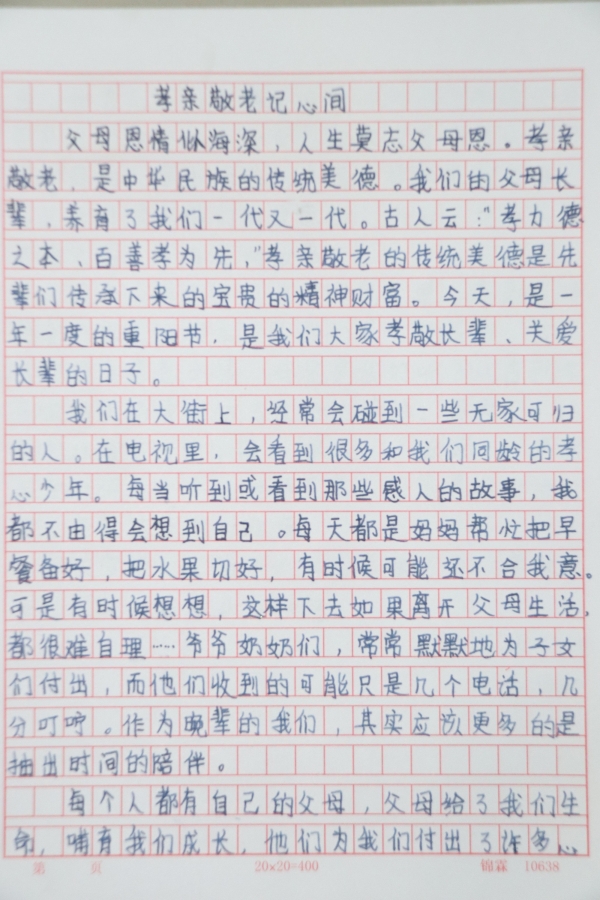 孝亲敬老记心间
父母恩情似海深，人生莫忘父母恩。孝亲
敬老，是中华民族的传统美德。我们由父母长
辈，养育了我们一代又一代。古人云："孝为德
之本、百善孝为先，"孝亲敬老的传统美德是先
辈们传承下来的宝贵的精神财富。今天，是一
年一度的重阳节，是我们大家孝敬长辈、关爱
长辈的日子。
我们在大街上，经常会碰到一些无家可归
的人。在电视里，会看到很多和我们同龄的孝
心少年。每当听到或看到那些感人的故事，我
都不由得会想到自己。每天都是妈妈帮忙把早
餐备好，把水果切好，有时候可能还不合我意。
可是有时候想想，这样下去如果离开父母生活，
都很难自理……爷爷奶奶们，常常默默地为子女
们付出，而他们收到的可能只是几个电话，几
分叮咛。作为晚辈的我们，其实应该更多的是
抽出时间的陪伴。
每个人都有自己的父母，父母给了我们生
命，哺育我们成长，他们为我们付出了许多心
第 页 20×20=400 锦霖 10638